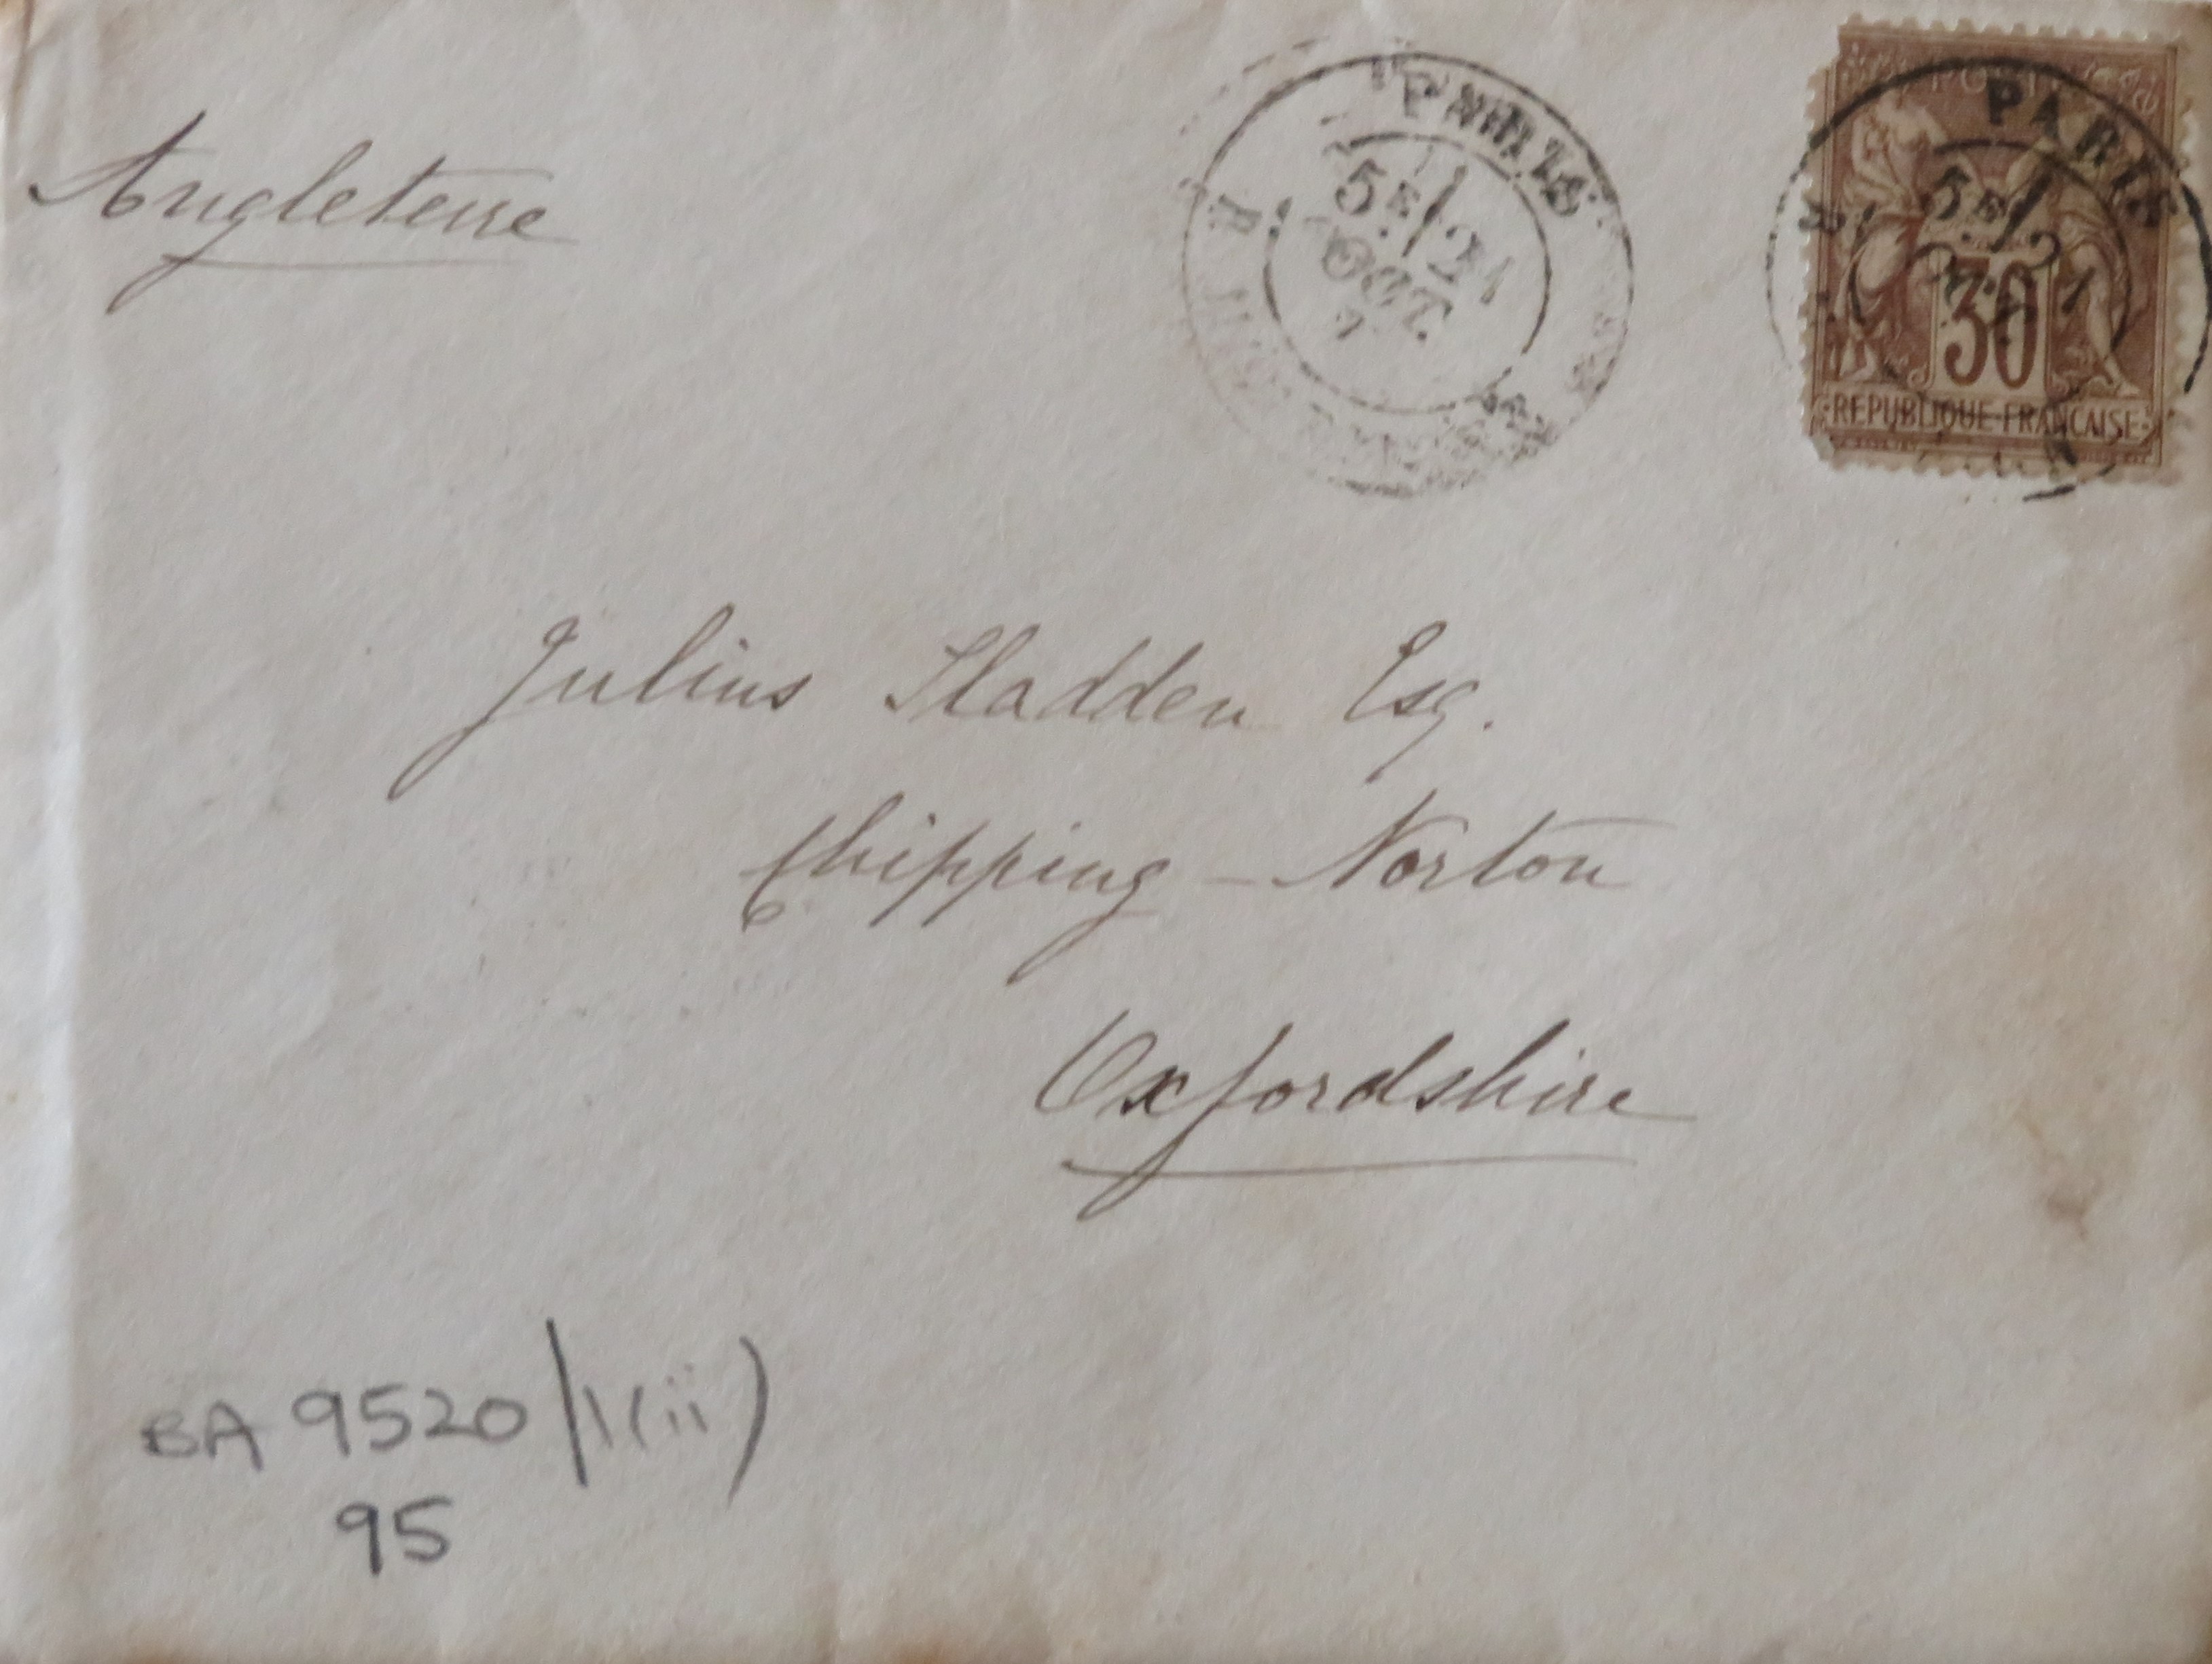 Angleterre
PARIS
5E / 21
OCT.
PARIS
5E /
30
REPUBLIQUE FRANCAISE
Julius Sladden Esq.
Chipping - Norton
Oxfordshire
BA 9520/1(ii)
95